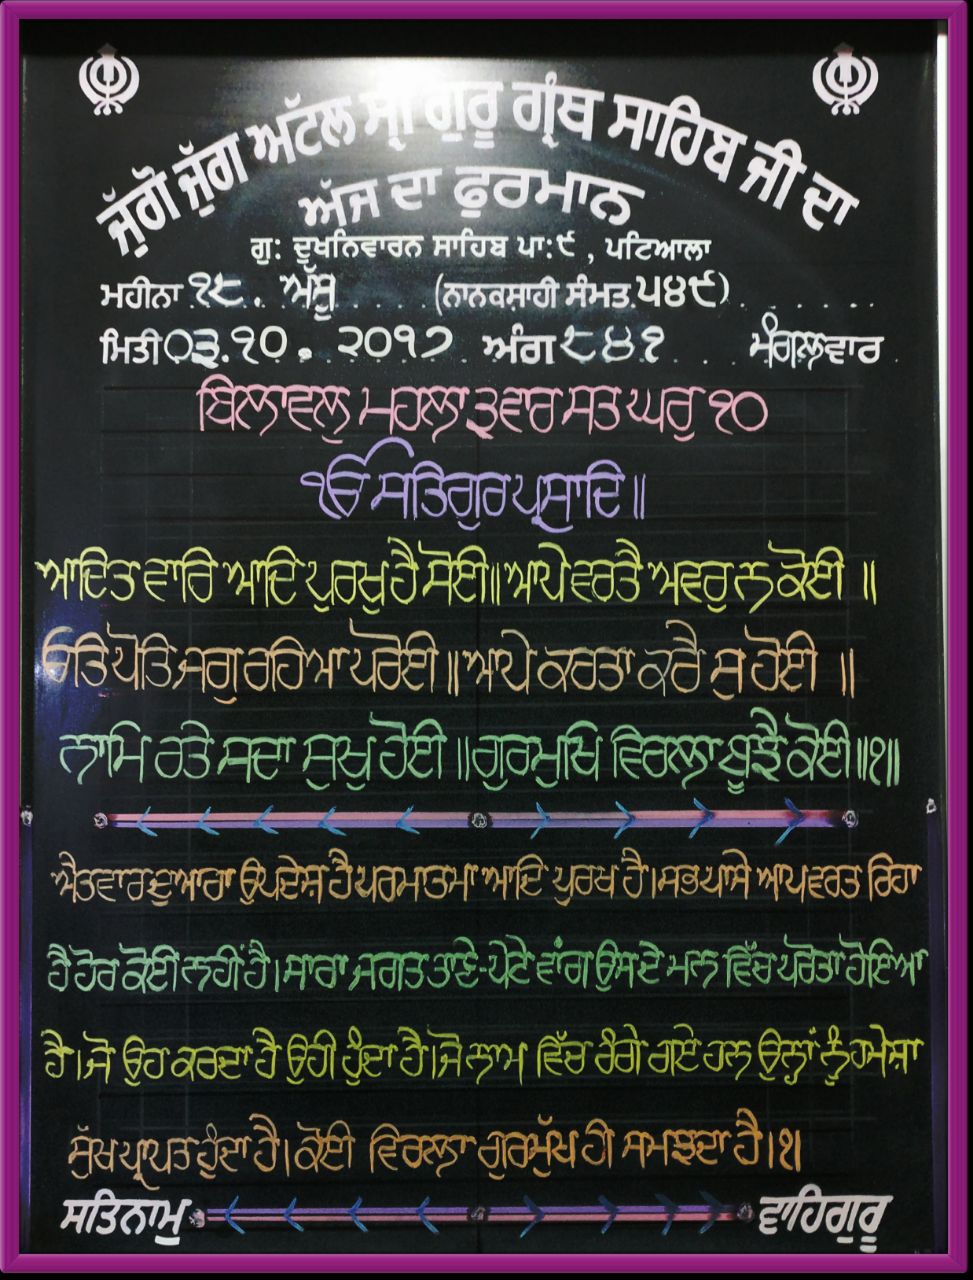 ਜੁੱਗੋ ਜੁੱਗ ਅਟੱਲ ਸ੍ਰੀ ਗੁਰੂ ਗ੍ਰੰਥ ਸਾਹਿਬ ਜੀ ਦਾ
ਅੱਜ ਦਾ ਫੁਰਮਾਨ
ਗੁ: ਦੁਖਨਿਵਾਰਨ ਸਾਹਿਬ ਪਾ:੯ , ਪਟਿਆਲਾ
ਮਹੀਨਾ ੧੮. ਅੱਸੂ (ਨਾਨਕਸ਼ਾਹੀ ਸੰਮਤ ੫੪੯)
ਮਿਤੀ ੦੩.੧੦. ੨੦੧੭ ਅੰਗ ੮੪੧ ਮੰਗਲਵਾਰ
ਬਿਲਾਵਲੁ ਮਹਲਾ ੩ ਵਾਰ ਸਤ ਘਰੁ ੧੦
ੴ ਸਤਿਗੁਰ ਪ੍ਰਸਾਦਿ॥
ਆਦਿਤ ਵਾਰਿ ਆਦਿ ਪੁਰਖੁ ਹੈ ਸੋਈ॥ ਆਪੇ ਵਰਤੈ ਅਵਰੁ ਨ ਕੋਈ ॥
ਓਤਿ ਪੋਤਿ ਜਗੁ ਰਹਿਆ ਪਰੋਈ॥ ਆਪੇ ਕਰਤਾ ਕਰੈ ਸੁ ਹੋਈ ॥
ਨਾਮਿ ਰਤੇ ਸਦਾ ਸੁਖੁ ਹੋਈ ॥ ਗੁਰਮੁਖਿ ਵਿਰਲਾ ਬੂਝੈ ਕੋਈ॥੧॥
ਐਤਵਾਰ ਦੁਆਰਾ ਉਪਦੇਸ਼ ਹੈ ਪਰਮਾਤਮਾ ਆਦਿ ਪੁਰਖ ਹੈ। ਸਭ ਪਾਸੇ ਆਪ ਵਰਤ ਰਿਹਾ
ਹੈ ਹੋਰ ਕੋਈ ਨਹੀਂ ਹੈ। ਸਾਰਾ ਜਗਤ ਤਾਣੇ-ਪੇਟੇ ਵਾਂਗ ਉਸਦੇ ਮਨ ਵਿੱਚ ਪਰੋਤਾ ਹੋਇਆ
ਹੈ। ਜੋ ਉਹ ਕਰਦਾ ਹੈ ਉਹੀ ਹੁੰਦਾ ਹੈ। ਜੋ ਨਾਮ ਵਿੱਚ ਰੰਗੇ ਗਏ ਹਨ ਉਨ੍ਹਾਂ ਨੂੰ ਹਮੇਸ਼ਾ
ਸੁੱਖ ਪ੍ਰਾਪਤ ਹੁੰਦਾ ਹੈ। ਕੋਈ ਵਿਰਲਾ ਗੁਰਮੁੱਖ ਹੀ ਸਮਝਦਾ ਹੈ।੧।
ਸਤਿਨਾਮੁ ਵਾਹਿਗੁਰੂ